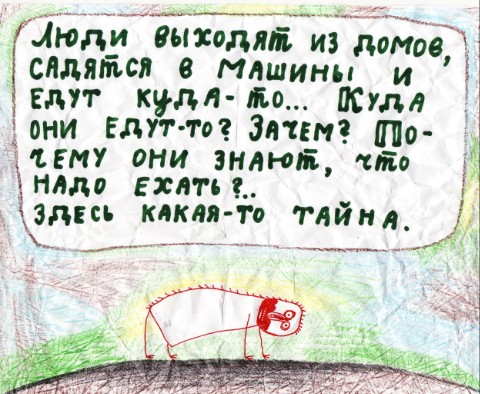 Люди выходят из домов,
садятся в машины и
едут куда-то... Куда
они едут-то? Зачем? По-
чему они знают, что
надо ехать?..
Здесь какая-то тайна.